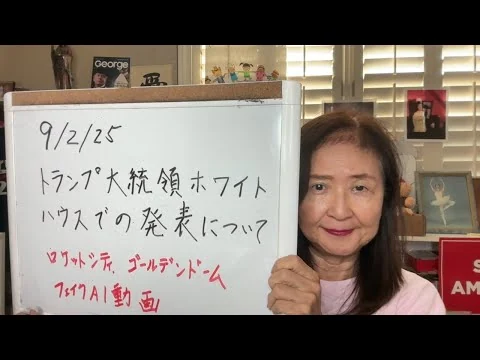 George
9/2/25
トランプ大統領ホワイト
ハウスでの発表について
ロケットシティ、ゴールデンドーム
フェイクAI動画
S
AM